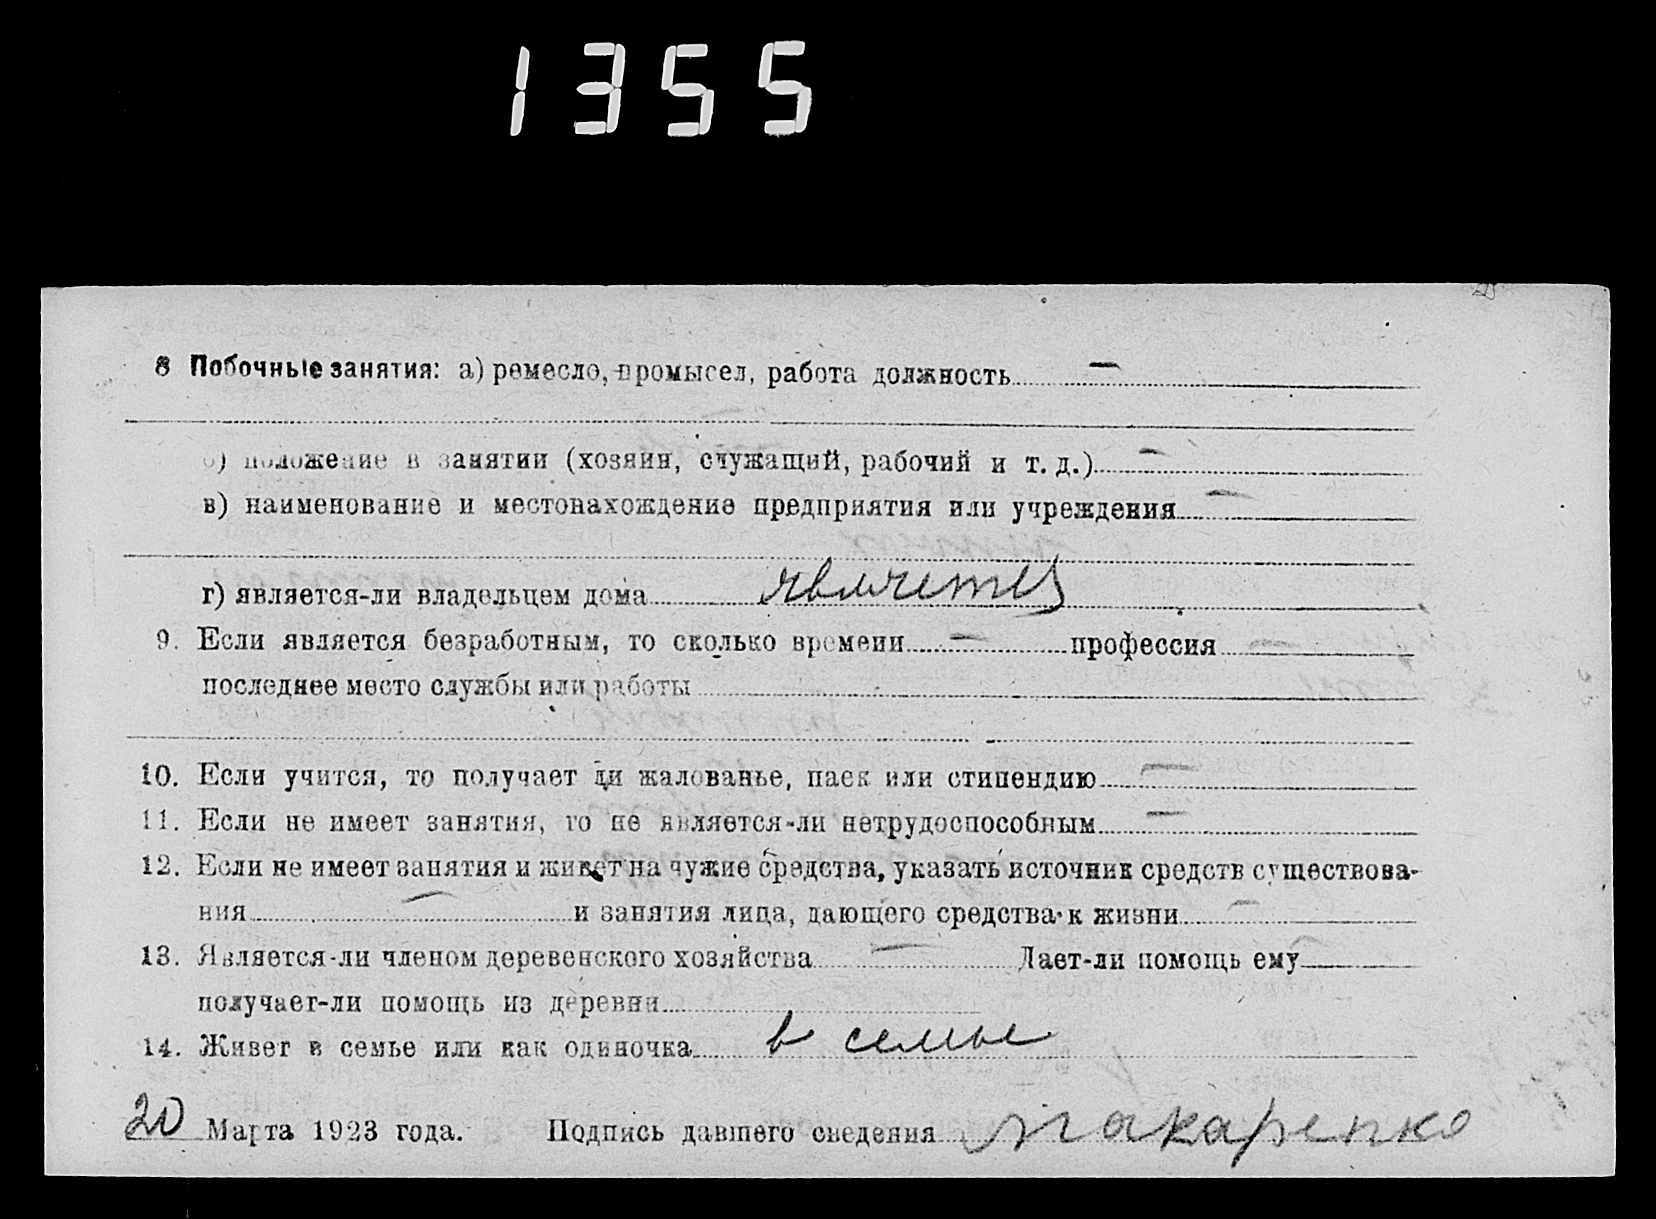 1355
8 Побочные занятия: а) ремесло, промысел, работа должность —
б) положение в занятии (хозяин, служащий, рабочий и т. д.) —
в) наименование и местонахождение предприятия или учреждения —
г) является-ли владельцем дома является
9. Если является безработным, то сколько времени — профессия —
последнее место службы или работы
10. Если учится, то получает ли жалованье, паек или стипендию —
11. Если не имеет занятия, то не является-ли нетрудоспособным —
12. Если не имеет занятия и живет на чужие средства, указать источник средств существова-
ния — и занятия лица, дающего средства к жизни —
13. Является-ли членом деревенского хозяйства — Дает-ли помощь ему
получает-ли помощь из деревни
14. Живет в семье или как одиночка в семье
20 Марта 1923 года. Подпись давшего сведения Макаренко